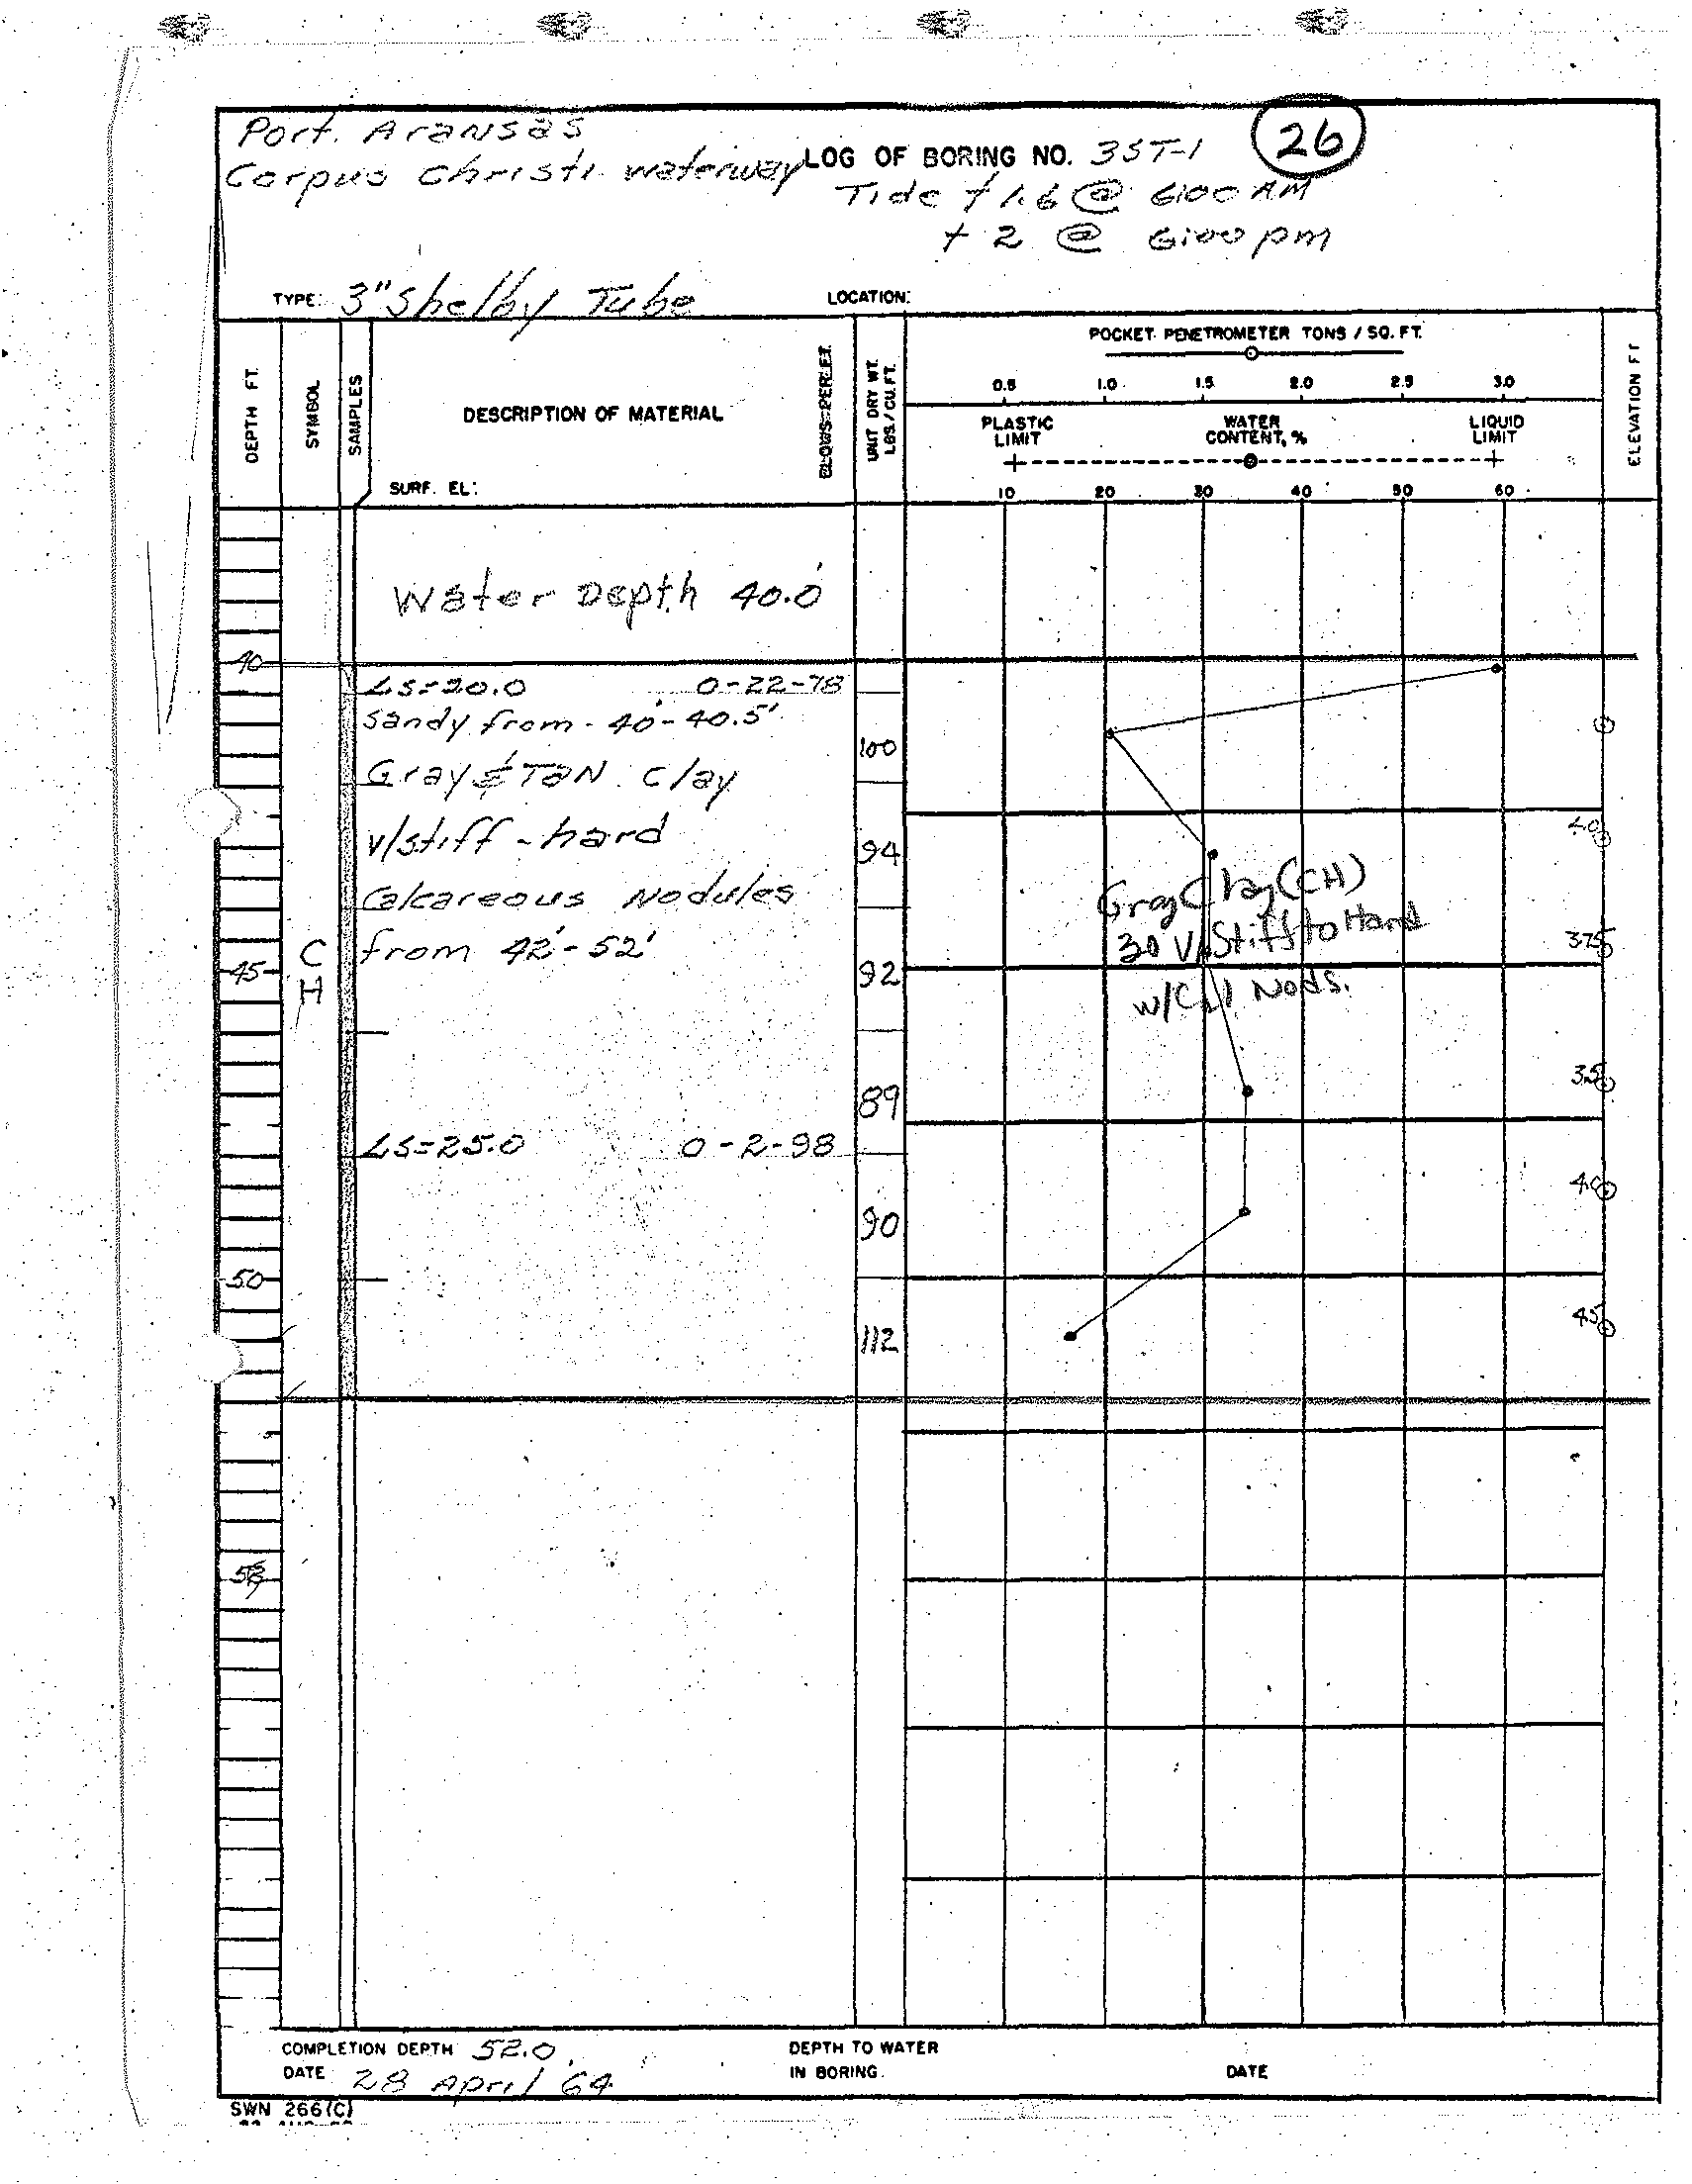 Port. Aransas
Corpus Christi waterway LOG OF BORING NO. 3ST-1 26
Tide + 1.6 @ 6:00 AM
+ 2 @ 6:00 pm
TYPE: 3" Shelby Tube LOCATION:
DEPTH FT.
SYMBOL
SAMPLES
DESCRIPTION OF MATERIAL
SURF. EL:
BLOWS PER FT.
UNIT DRY WT. LBS. / CU. FT.
POCKET PENETROMETER TONS / SQ. FT.
0.5 1.0 1.5 2.0 2.5 3.0
PLASTIC LIMIT
WATER CONTENT, %
LIQUID LIMIT
10 20 30 40 50 60
ELEVATION FT
Water Depth 40.0'
40
LS=20.0 0-22-78
Sandy from - 40'-40.5'
100
Gray & TAN Clay
4.0
v/stiff - hard
94
Calcareous Nodules
Gray Clay (CH)
from 42'-52'
30 V/Stiff to Hard
3.75
45
C
H
92
w/Cal Nods.
3.5
89
LS=25.0 0-2-98
4.0
90
50
4.5
112
COMPLETION DEPTH 52.0
DATE 28 April 64
DEPTH TO WATER
IN BORING.
DATE
SWN 266(C)